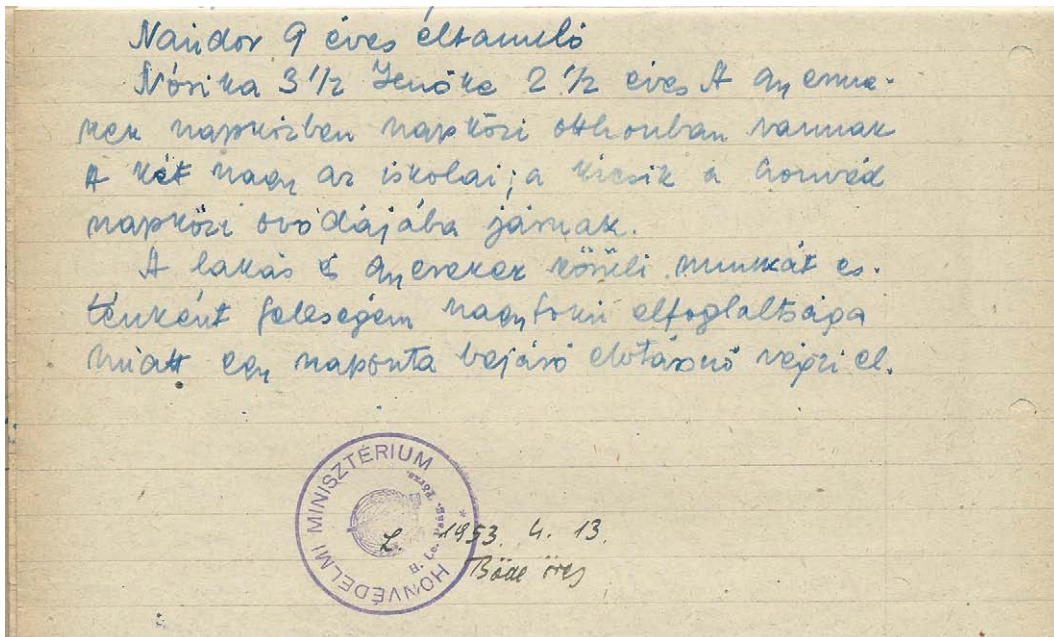 Nándor 9 éves éltanuló
Nórika 3 1/2 Jenőke 2 1/2 éves A gyerme-
kek napközben napközi otthonban vannak
A két nagy az iskolai; a kicsik a honvéd
napközi ovódájába járnak.
A lakás és gyerekek körüli munkát es-
ténként feleségem nagyfokú elfoglaltsága
miatt egy naponta bejáró elvtársnő végzi el.
HONVÉDELMI MINISZTÉRIUM
1953. 4. 13.